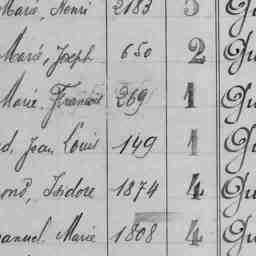 Marie, Henri 2183 3 Gu
Marie, Joseph 650 2 Gu
Marie, Francois 269 1 Gu
d, Jean Louis 149 1 Gu
ond, Isidore 1874 4 Gu
manuel, Marie 1808 4 Gu